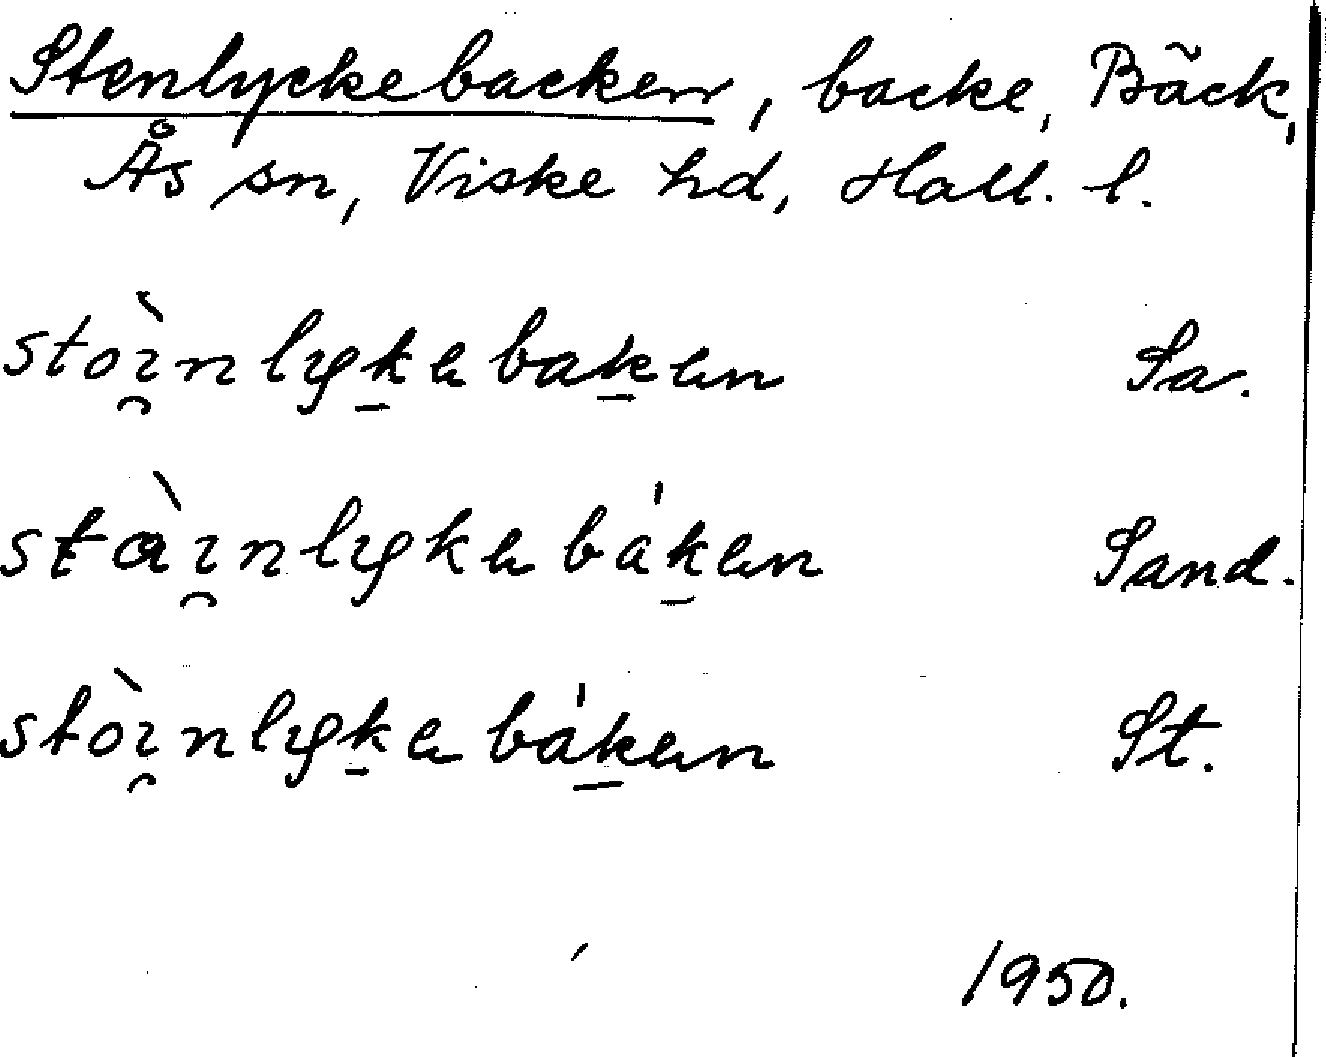 Stenlyckebacken, backe, Bäck,
Ås sn, Viske hd, Hall. l.
stòı̯nlyk̲ebak̲en Sa.
stàı̯nlykebák̲en Sand.
stòı̯nlyk̲ebák̲en St.
1950.